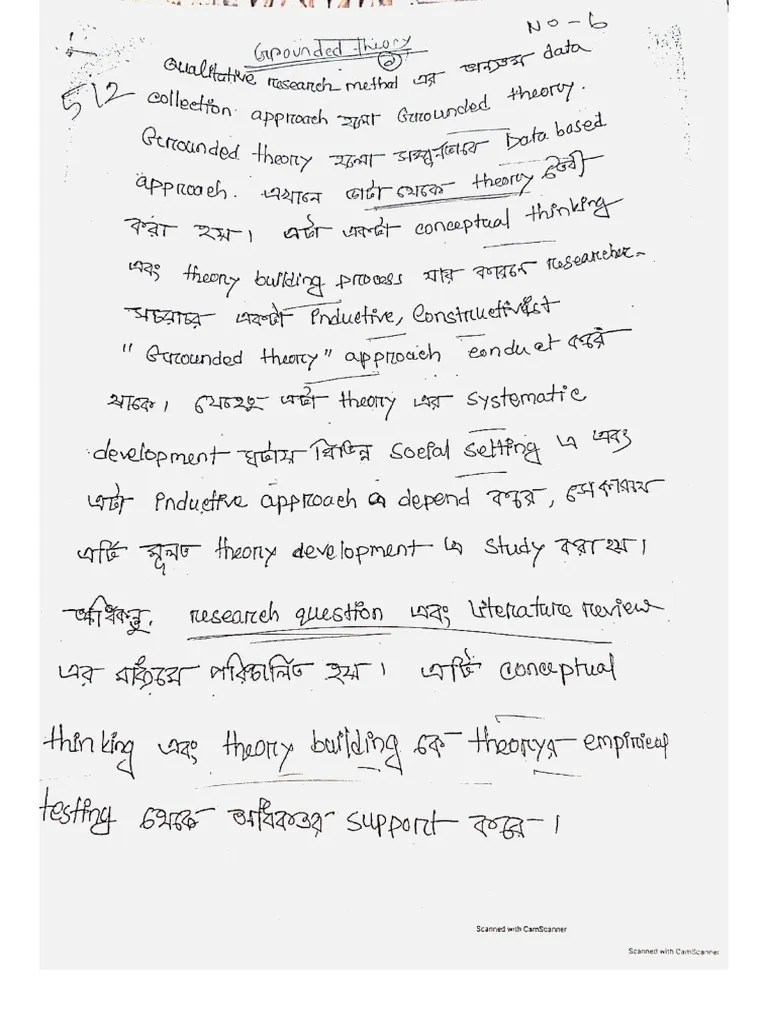 NO-6
Grounded theory
512
Qualitative research method এর অন্যতম data
collection approach হলো Grounded theory.
Grounded theory হলো সম্পূর্নভাবে Data based
approach. এখানে ডাটা থেকে theory তৈরী
করা হয়। এটা একটা conceptual thinking
এবং theory building process যার কারনে researcher
সচরাচর একটা Inductive, Constructivist
"Grounded theory" approach conduct করে
থাকে। যেহেতু এটা theory এর systematic
development ঘটায় বিভিন্ন social setting এ এবং
এটা inductive approach এ depend করে, সে কারনে
এটি মূলত theory development এ study করা হয়।
অধিকন্তু, research question এবং literature review
এর মাধ্যমে পরিচালিত হয়। এটি conceptual
thinking এবং theory building কে theoryর empirical
testing থেকে অধিকতর support করে।
Scanned with CamScanner
Scanned with CamScanner